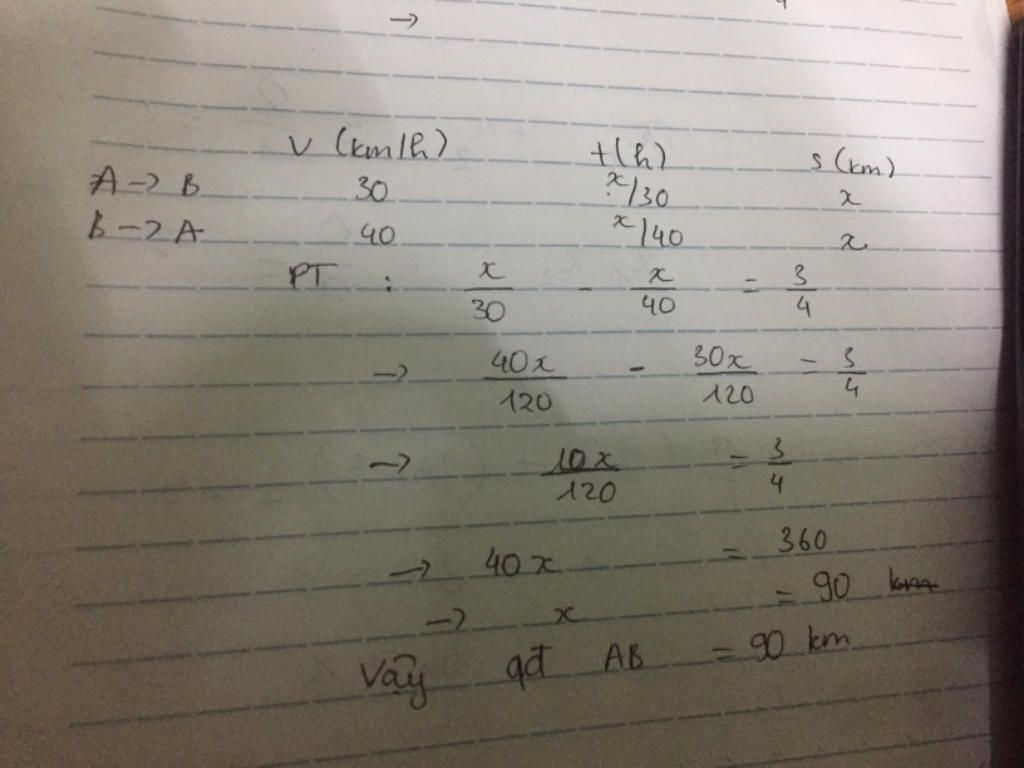 →
V (km/h) t(h) s(km)
A → B 30 x/30 x
B → A 40 x/40 x
PT : x/30 - x/40 = 3/4
→ 40x/120 - 30x/120 = 3/4
→ 10x/120 = 3/4
→ 40x = 360
→ x = 90 km
Vậy qđ AB = 90 km